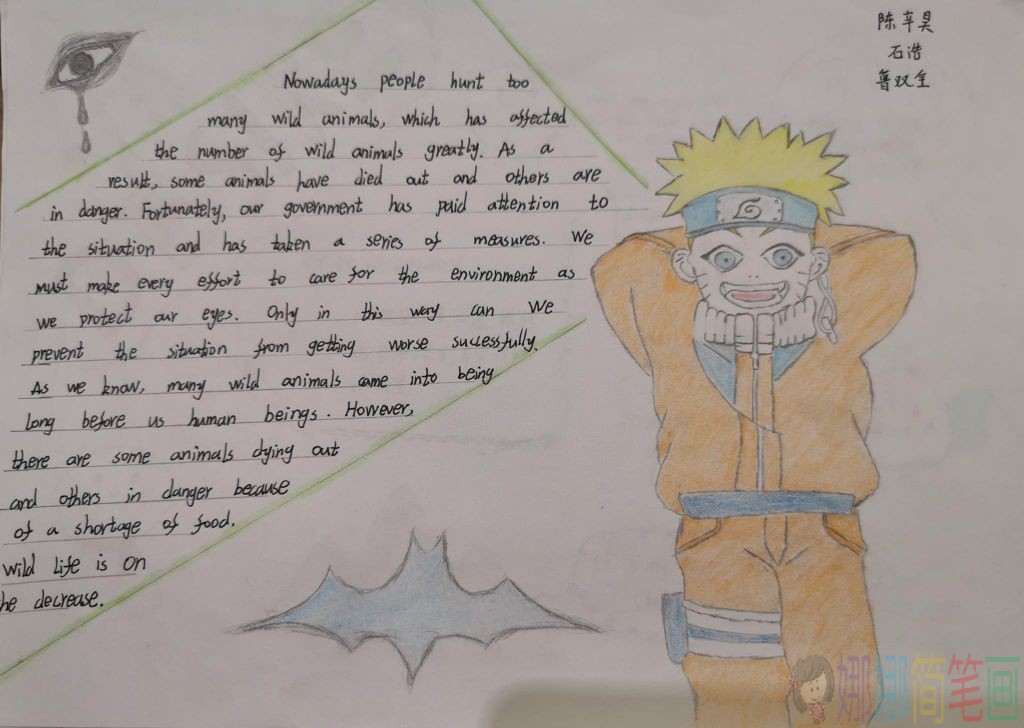 陈辛昊
石浩
鲁双全
Nowadays people hunt too
many wild animals, which has affected
the number of wild animals greatly. As a
result, some animals have died out and others are
in danger. Fortunately, our government has paid attention to
the situation and has taken a series of measures. We
must make every effort to care for the environment as
we protect our eyes. Only in this way can we
prevent the situation from getting worse successfully.
As we know, many wild animals came into being
long before us human beings. However,
there are some animals dying out
and others in danger because
of a shortage of food.
Wild life is on
the decrease.
娜娜简笔画